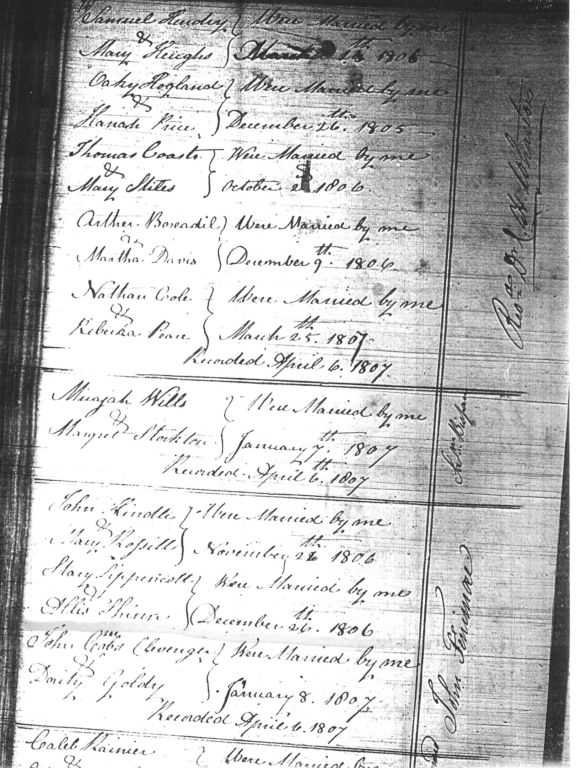 Samuel } Were Married by me
&
Mary Hughs } March 13th 1806
Oaky Hogland } Were Married by me
&
Hanah Price } December 26th. 1805
Thomas Coast } Were Married by me
&
Mary Stites } October 2 1806
Arther Boreadil } Were Married by me
&
Martha Davis } December 9th. 1806
Nathan Cole } Were Married by me
&
Rebecka } March 25th. 1807
Recorded April 6. 1807.
Wills } Were Married by me
&
Margret Stockton } January 7th. 1807
Recorded April 6th. 1807
John Kindle } Were Married by me
&
Mary } November 1806
Lippencott } Were Married by me
&
Allis } December 26th. 1806
John Clevenger } Were Married by me
&
Goldy } January 8. 1807.
Recorded April 6. 1807
Caleb Rainier } Were Married by
Revd. Dr. C. H. Wharton
John Fenimore